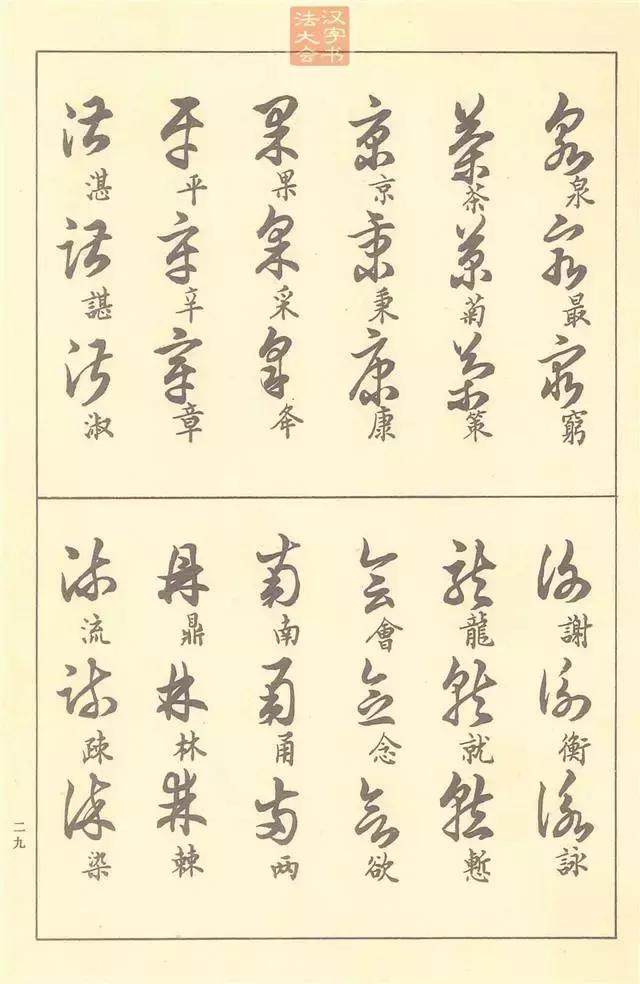 汉字书
法大会
泉最窮
茶菊策
京秉康
果采
平辛章
湛諶淑
謝衡詠
龍就慙
會念欲
南甬两
鼎林棘
流疎染
二九